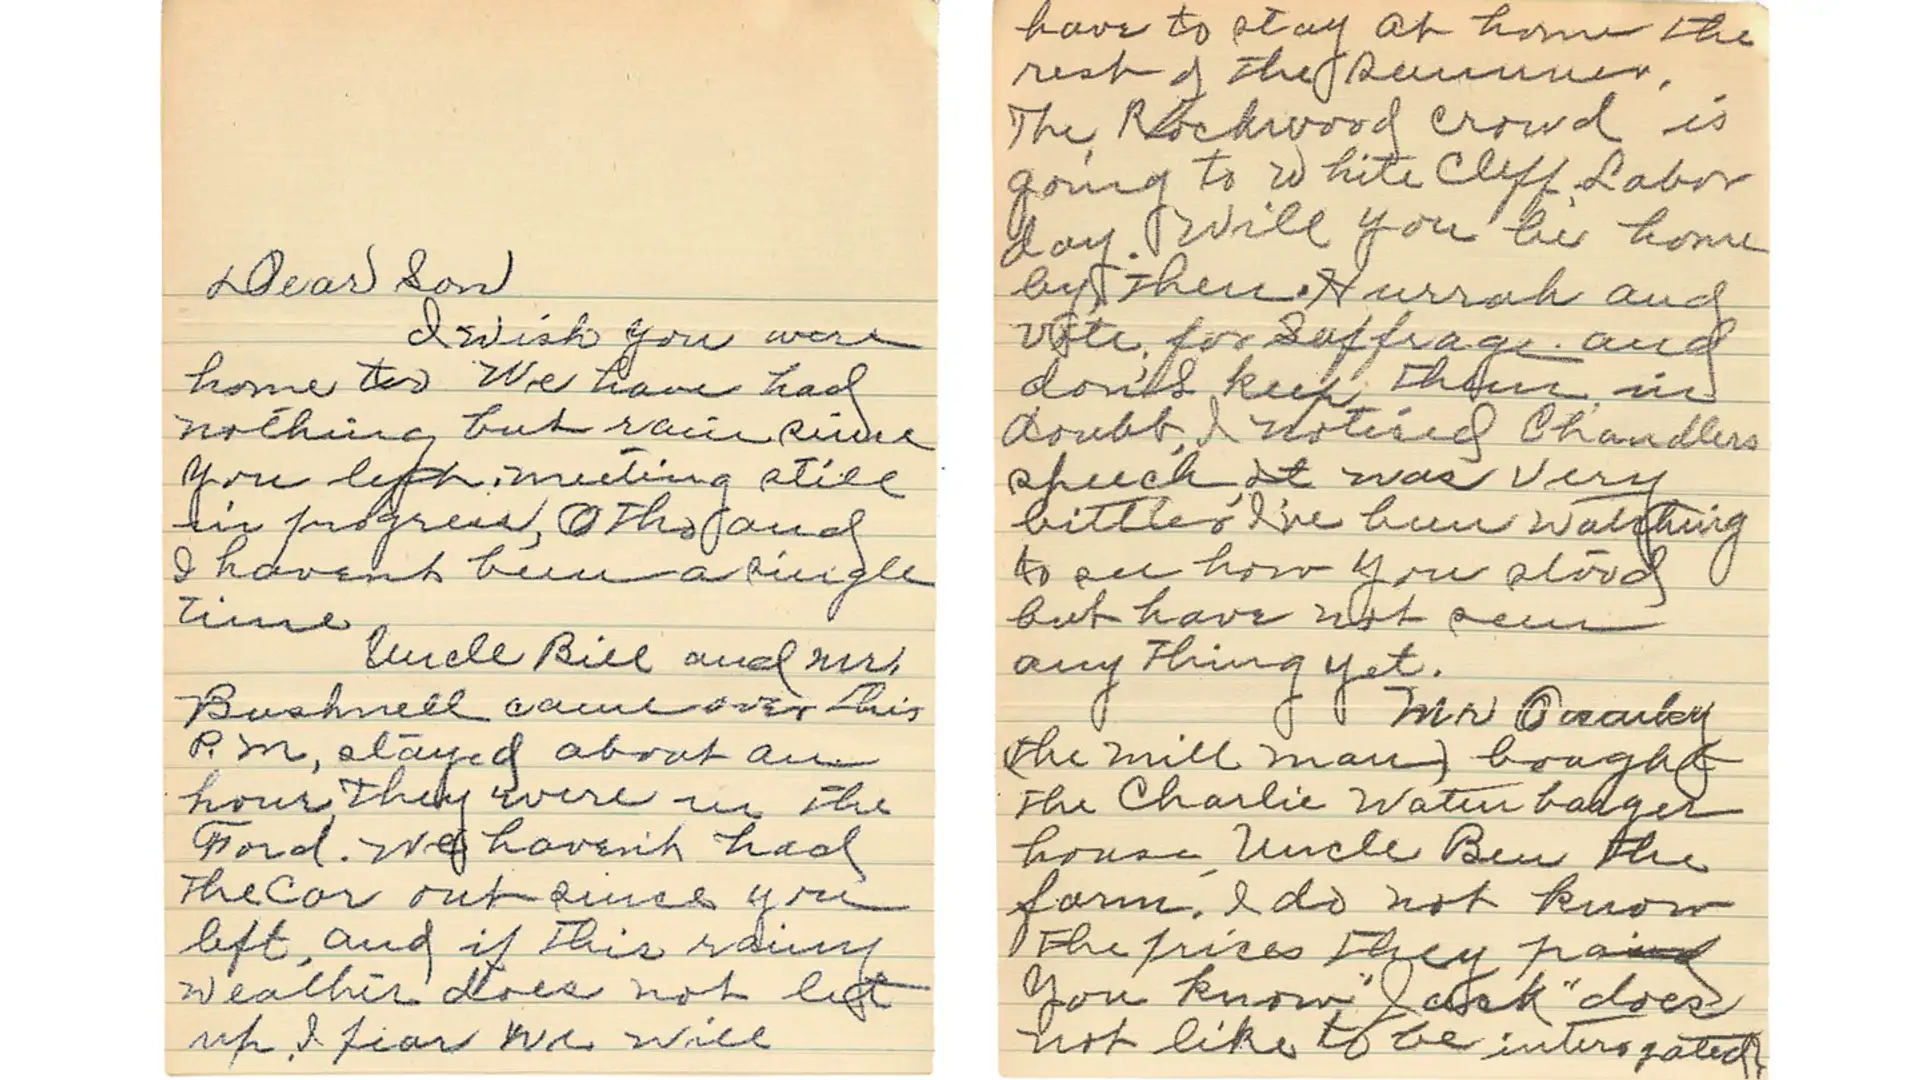 Dear Son
I wish you were
home too We have had
nothing but rain since
you left. meeting still
in progress, Otho and
I havent been a single
time
Uncle Bill and Mr.
Bushnell came over this
P.M, stayed about an
hour, They were in the
Ford. We haven't had
the car out since you
left, and if this rainy
weather does not let
up, I fear we will
have to stay at home the
rest of the summer.
The Rockwood crowd is
going to White Cliff Labor
day. Will you be home
by then. Hurrah and
vote for Suffrage and
don't keep them in
doubt, I noticed Chandlers
speech, It was very
bitter, I've been watching
to see how you stood
but have not seen
any thing yet.
Mr
(the mill man) bought
the Charlie
house Uncle Ben the
farm. I do not know
the prices they paid
You know "Jack" does
not like to be interogated.